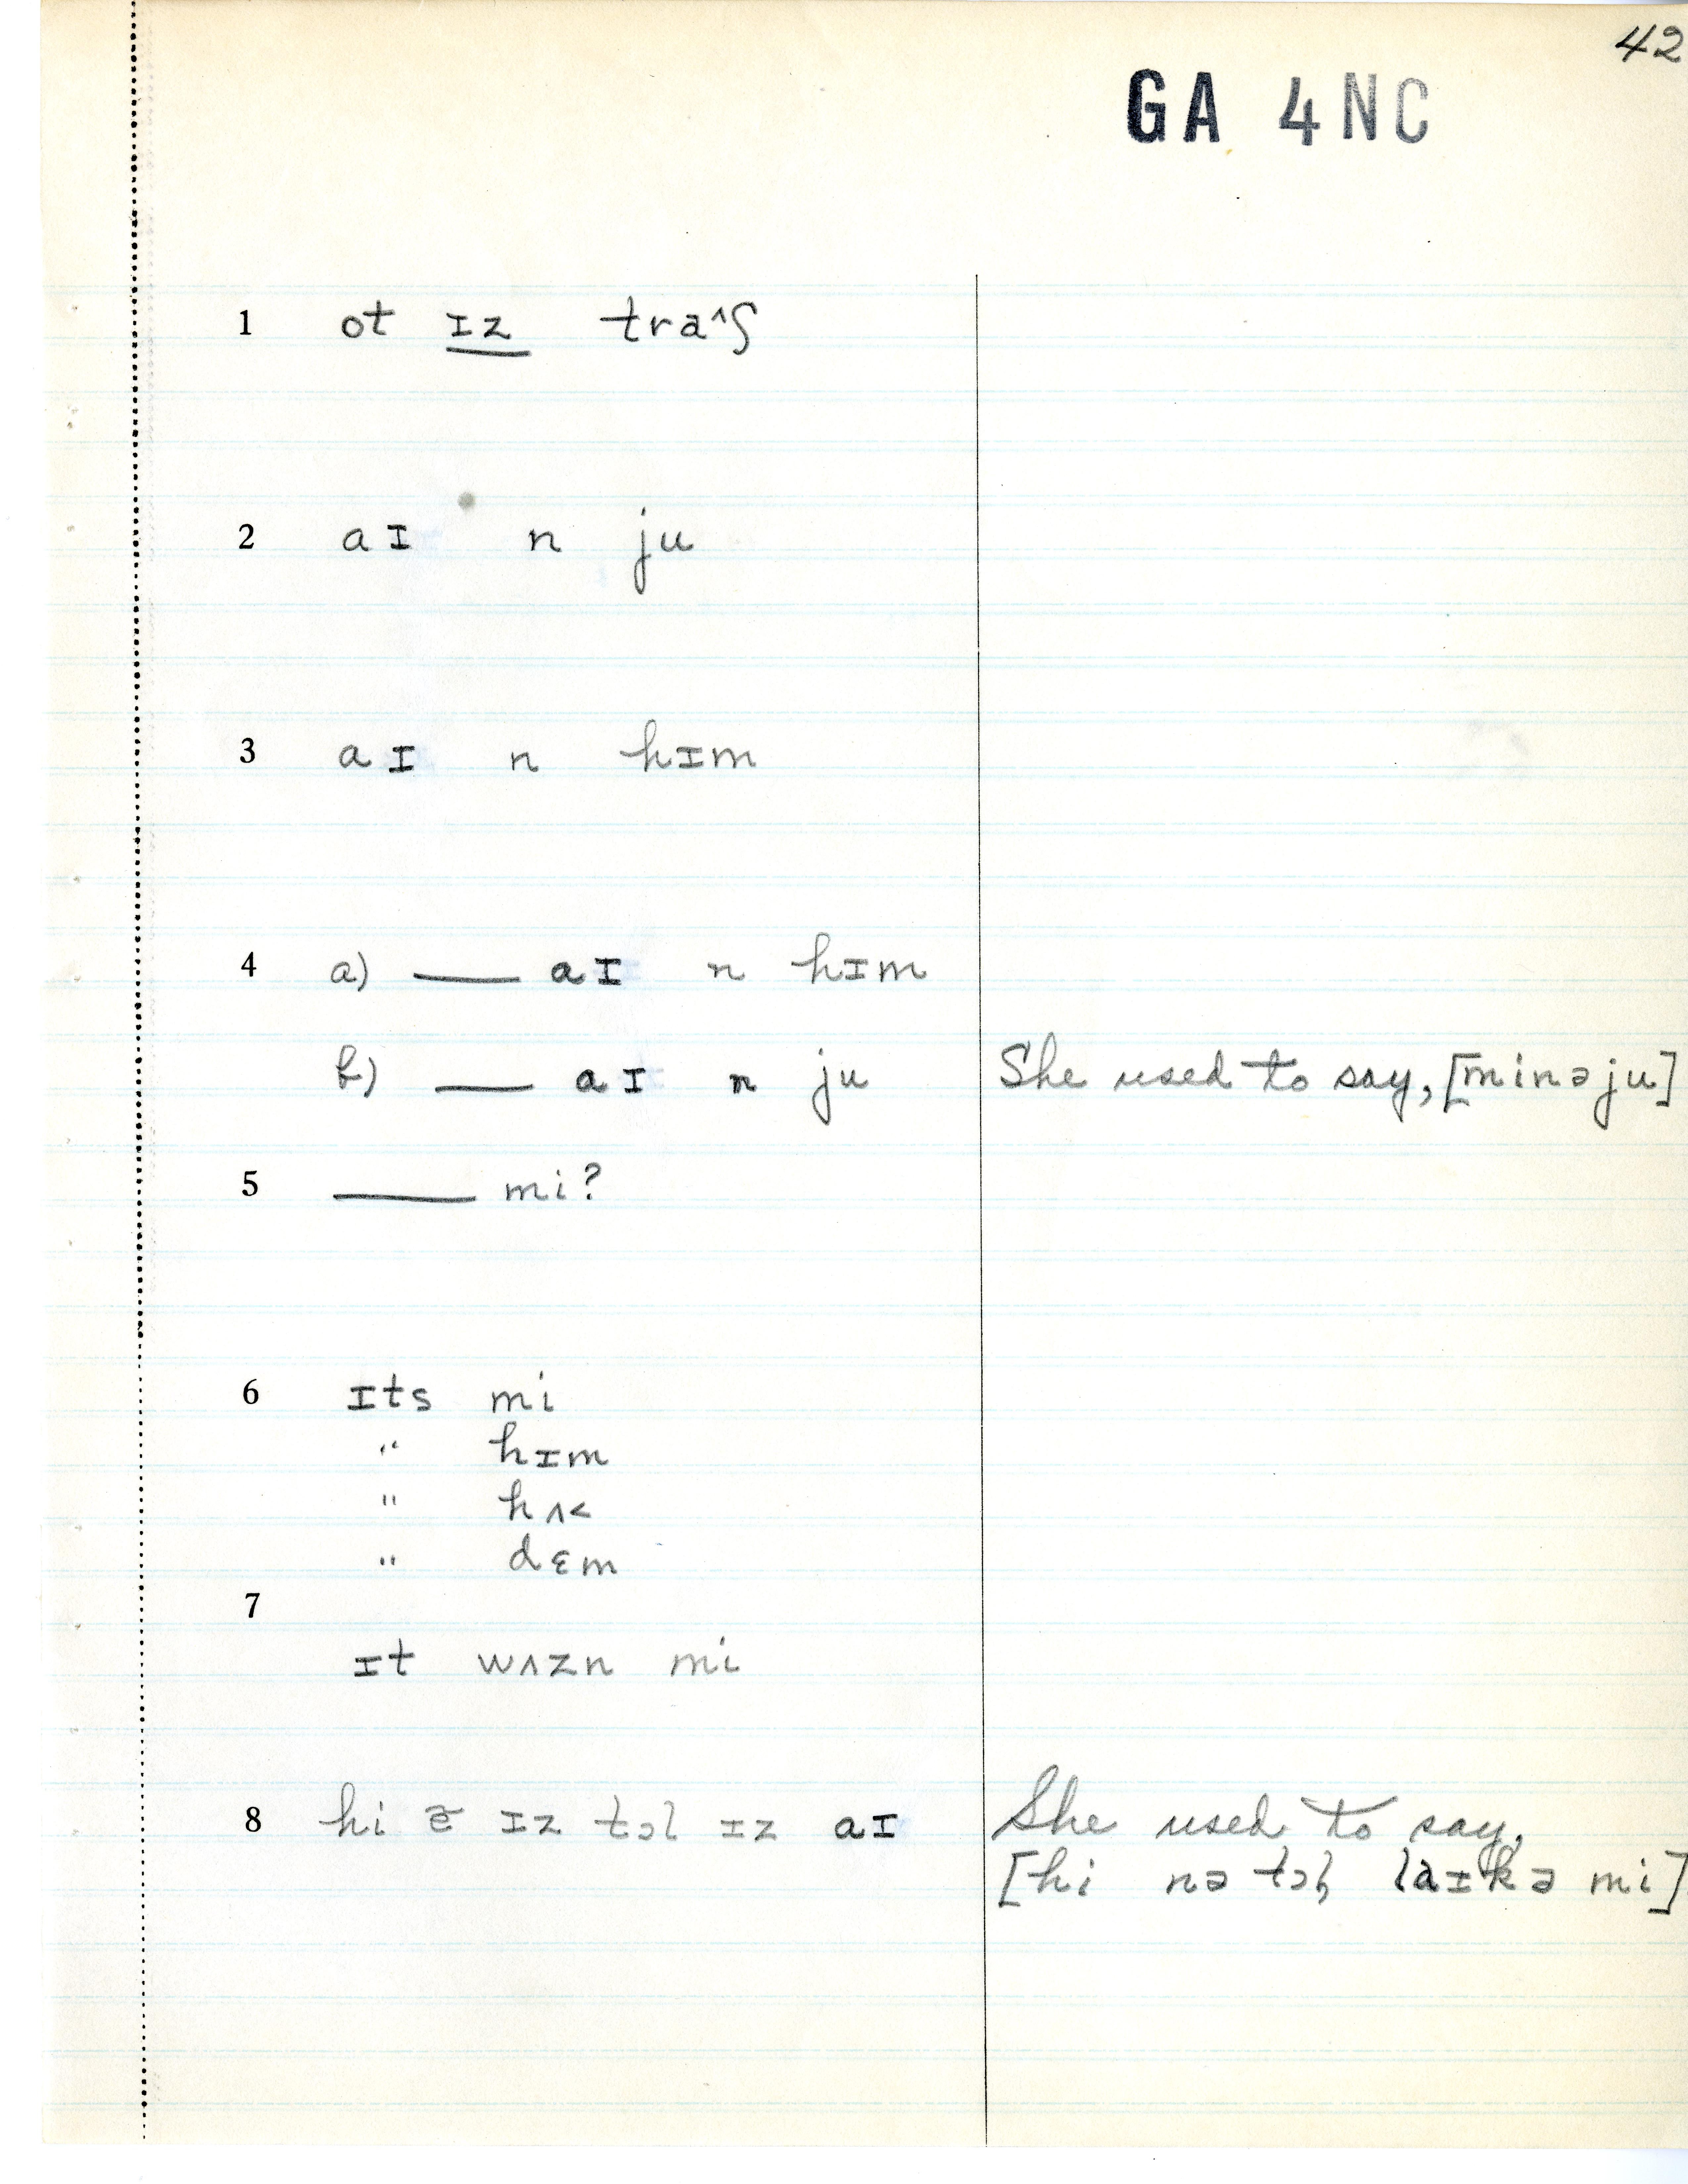 42
GA 4NC
1 ot ɪz traʌʃ
2 aɪ n ju
3 aɪ n hɪm
4 a) ___ aɪ n hɪm
b) ___ aɪ n ju She used to say, [minəju]
5 ___ mi?
6 ɪts mi
" hɪm
" hʌ<
" dɛm
7
ɪt wʌzn mi
8 hi ɪz tɔl ɪz aɪ She used to say,
[hi nə tɔl laɪkə mi]